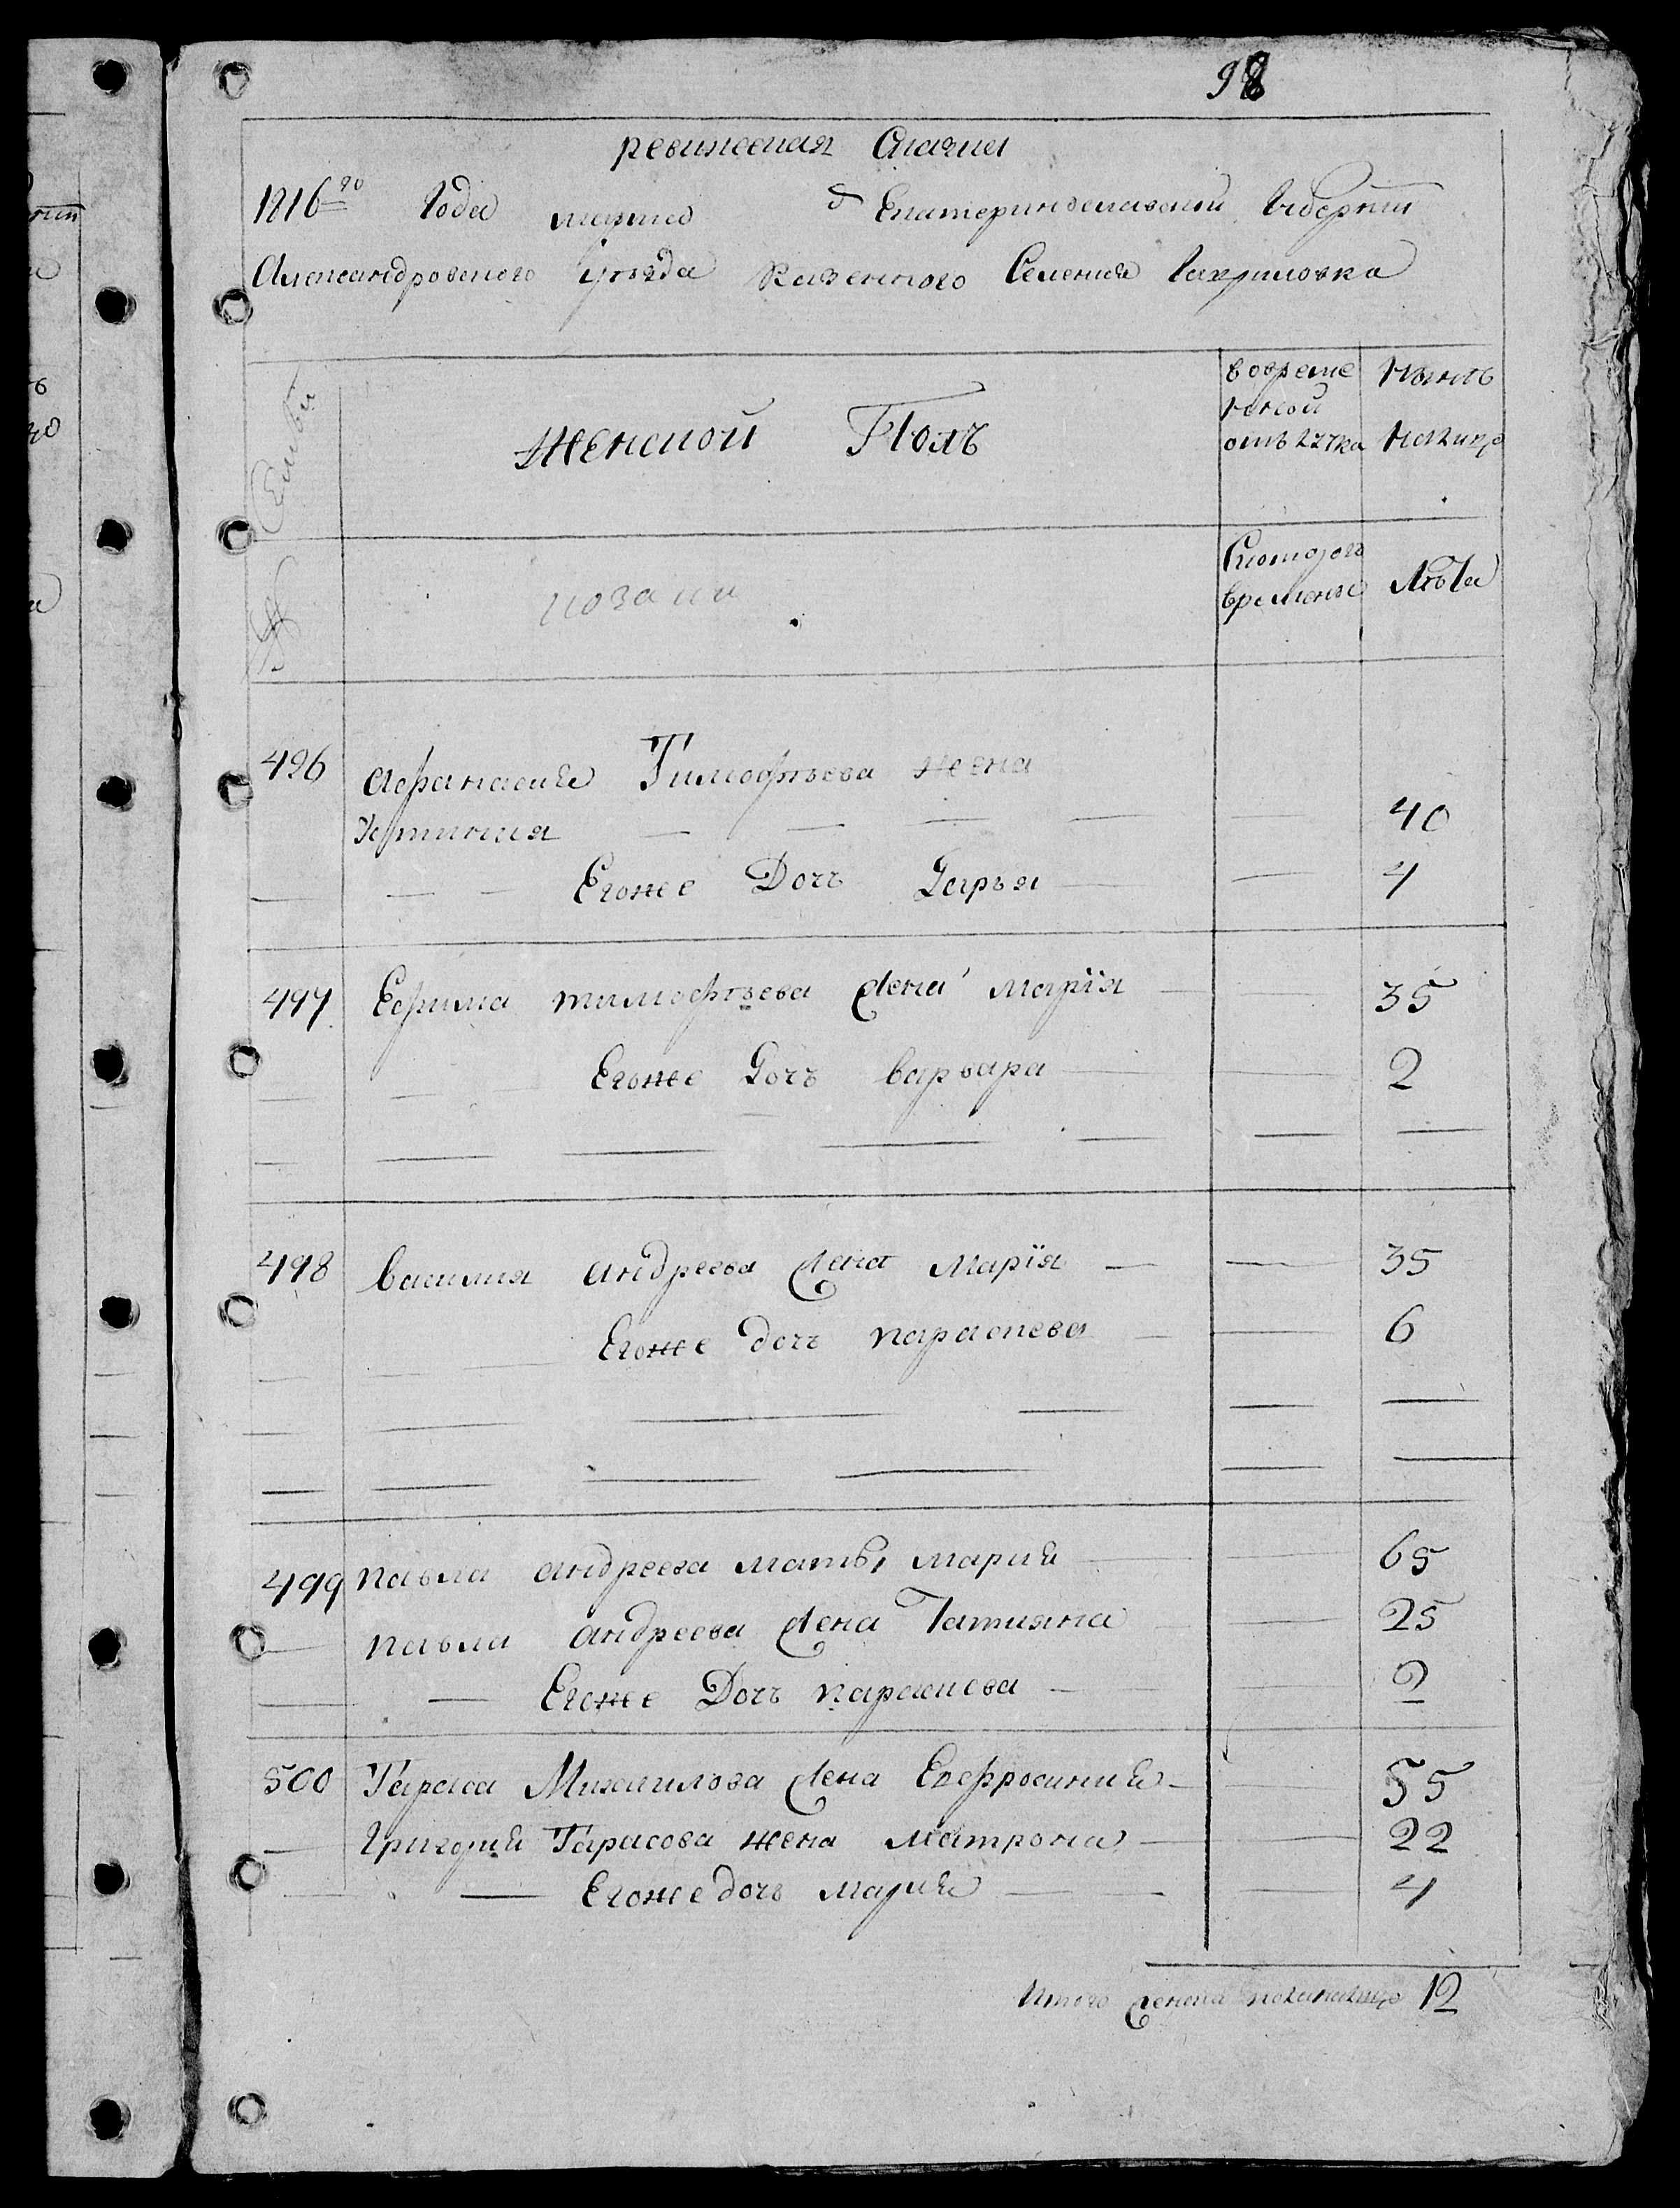 98
ревижская Скаски
1816го Года марта д Екатеринославской Губернии
Александровского уѣзда Казенного Селения Гавриловка
№ Семьи
Женской Полъ
вовреме
нной
отлучка
Нынѣ
налицо
козаки
Скоторого
времени
Лѣта
496 Афанасия Тимофѣева жена
Устиния 40
Егоже Дочь Дарья 4
497 Ефима тимофѣева жена Марія 35
Егоже Дочъ варвара 2
498 Василия андреева жена Марія 35
Егоже дочъ параскева 6
499 павла андреева мать мария 65
павла андреева жена Татияна 25
Егоже Дочъ параскева 2
500 Тараса Михаилова жена Ефросиния 55
Григория Тарасова жена матрона 22
Егоже дочъ мария 4
Итого женска налицо 12